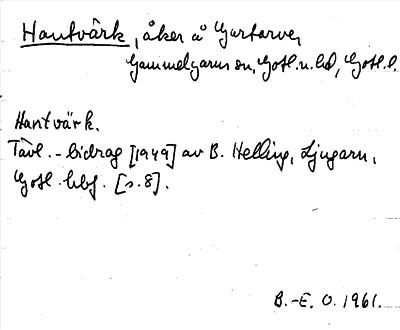 Hantvärk, åker å Gartarve,
Gammelgarns sn, Gotl. n. hd, Gotl. l.
Hantvärk.
Tävl.-bidrag [1949] av B. Helling, Ljugarn,
Gotl. hbf. [s. 8].
B.-E. O. 1961.